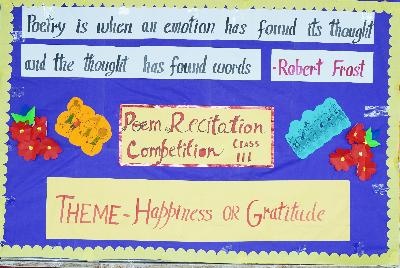 Poetry is when an emotion has found its thought
and the thought has found words
-Robert Frost
Poem Recitation
Competition Class III
THEME-Happiness OR Gratitude